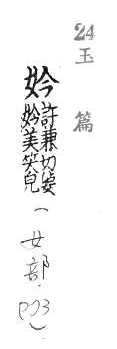 24
玉篇
妗
許兼切姿
妗美笑皃
(女部